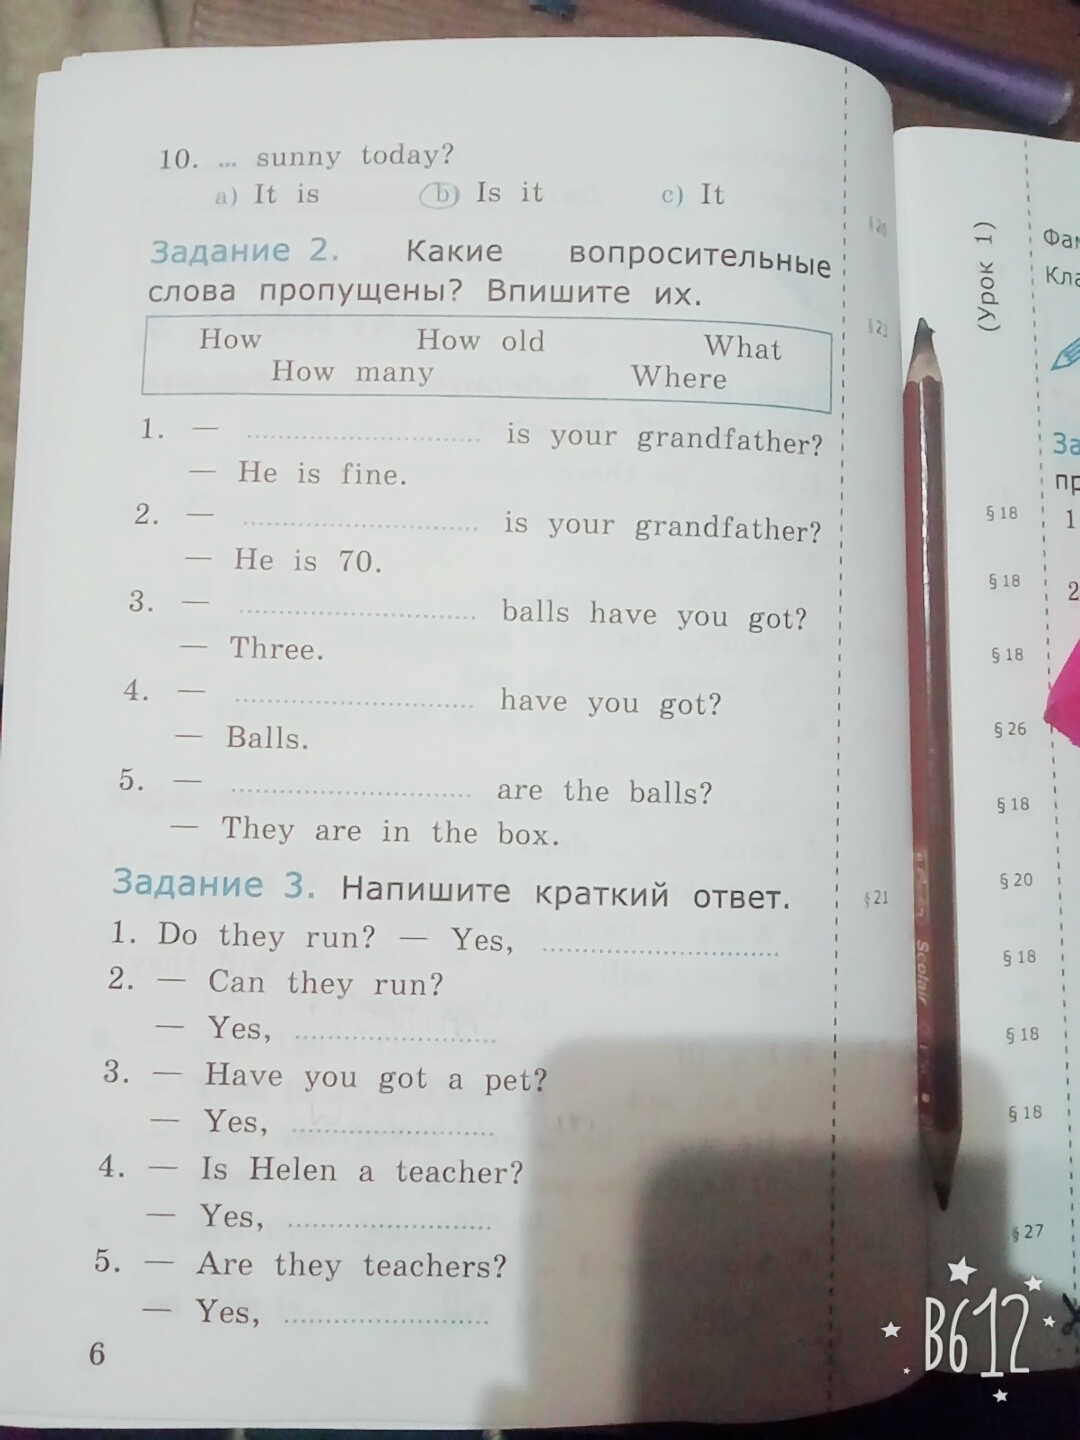 10. ... sunny today?
a) It is b) Is it c) It
Задание 2. Какие вопросительные
слова пропущены? Впишите их.
§ 20
§ 21
How How old What
How many Where
1. — .............................. is your grandfather?
— He is fine.
2. — .............................. is your grandfather?
— He is 70.
3. — .............................. balls have you got?
— Three.
4. — .............................. have you got?
— Balls.
5. — .............................. are the balls?
— They are in the box.
Задание 3. Напишите краткий ответ.
§ 21
1. Do they run? — Yes, ..............................
2. — Can they run?
— Yes, ..........................
3. — Have you got a pet?
— Yes, ..........................
4. — Is Helen a teacher?
— Yes, ..........................
5. — Are they teachers?
— Yes, ..........................
6
(Урок 1)
Фам
Кла
За
пр
1
2
§ 18
§ 18
§ 18
§ 26
§ 18
§ 20
§ 18
§ 18
§ 18
§ 27
Scolair
B612